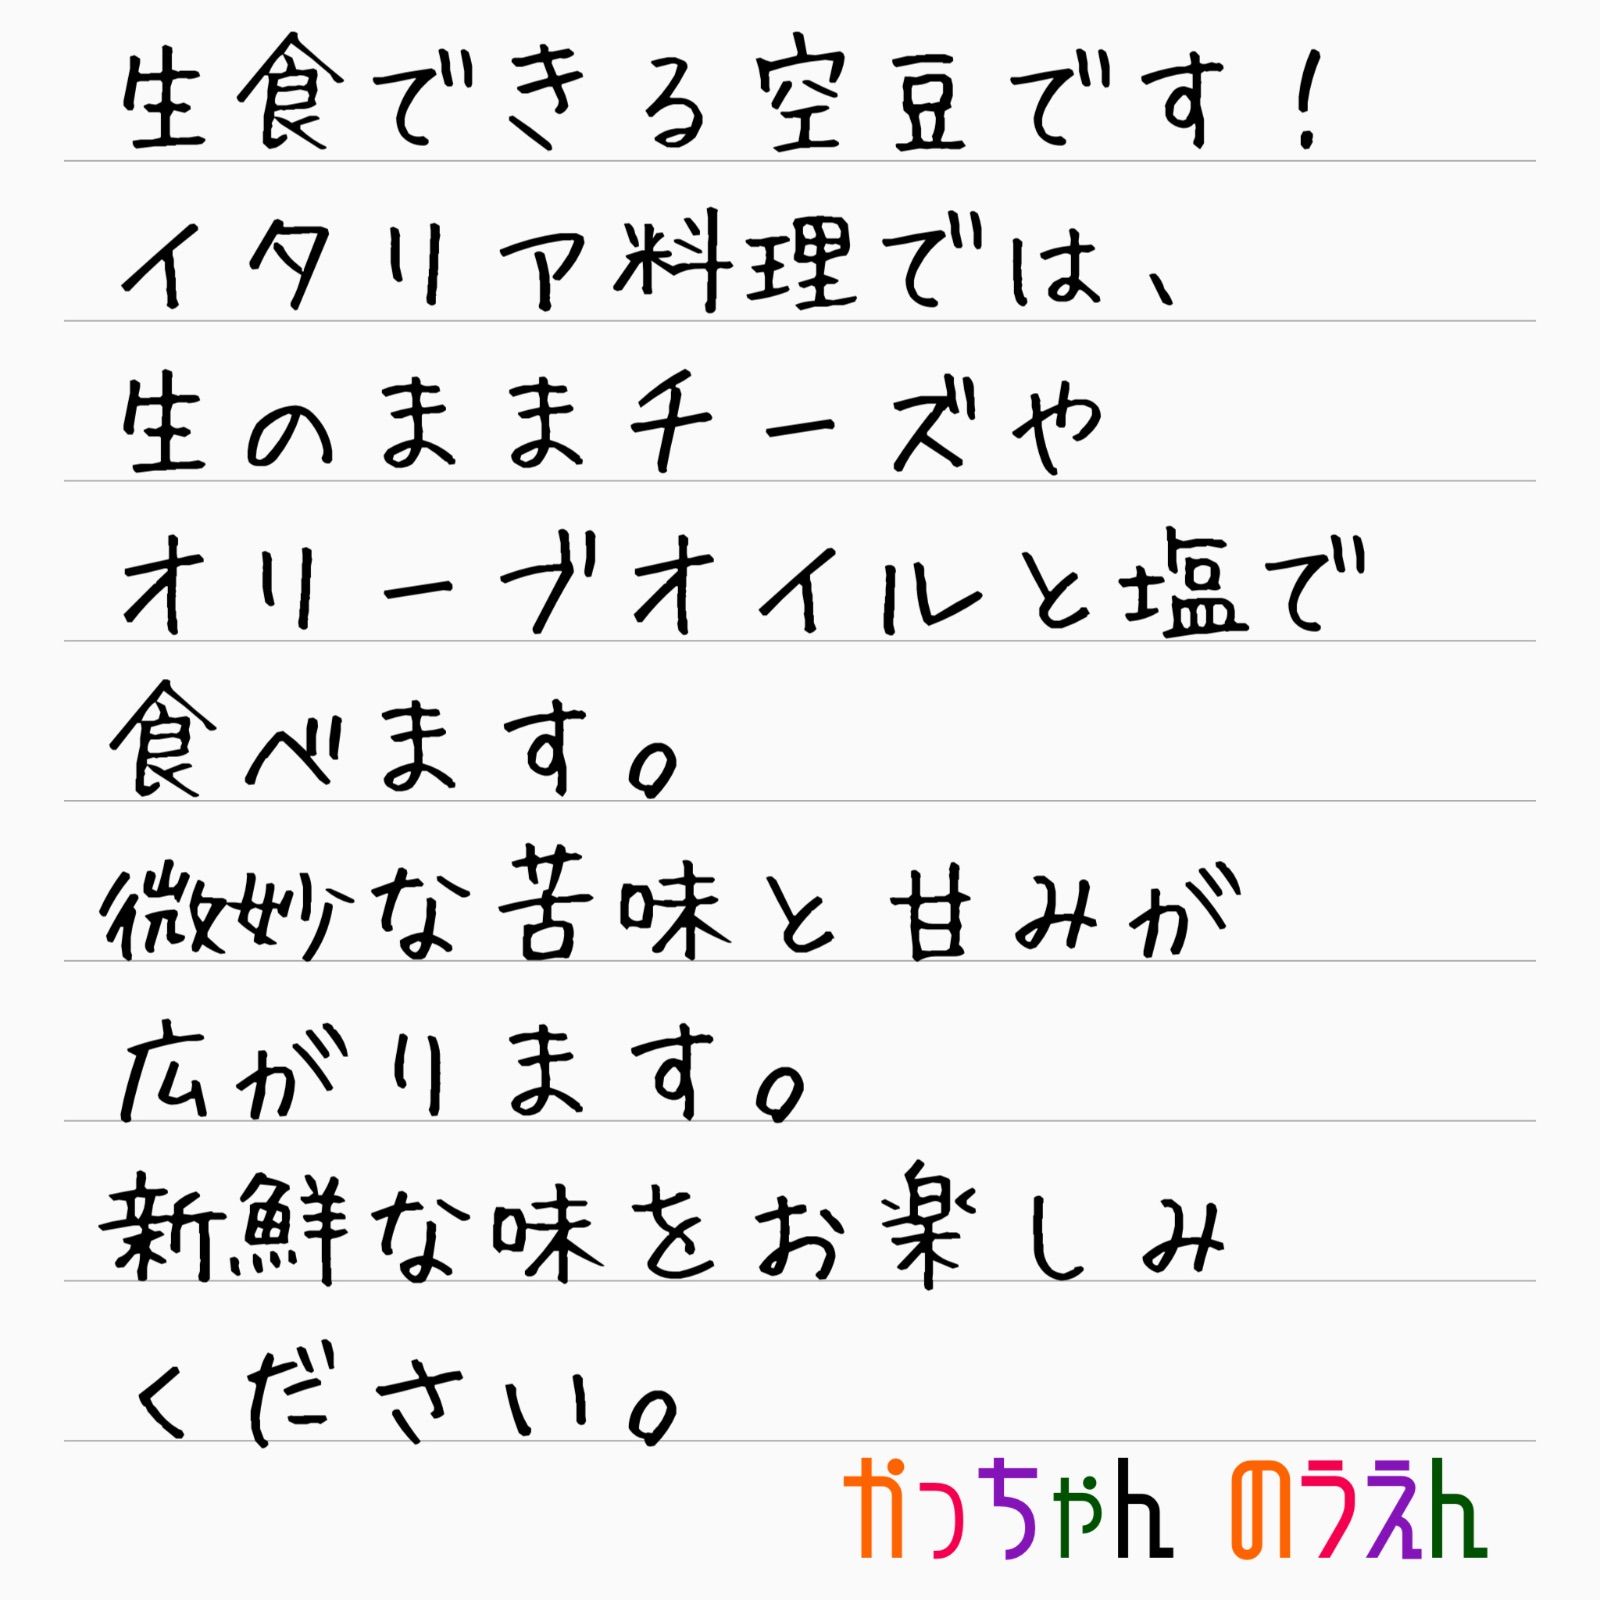 生食できる空豆です！
イタリア料理では、
生のままチーズや
オリーブオイルと塩で
食べます。
微妙な苦味と甘みが
広がります。
新鮮な味をお楽しみ
ください。
かっちゃん のうえん